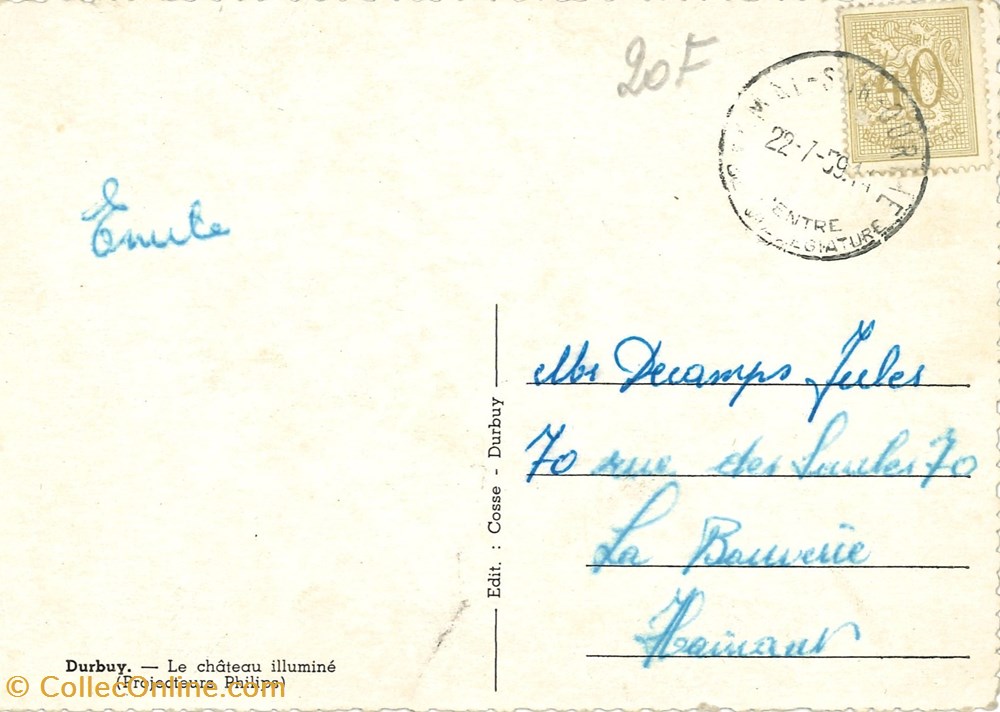 20F
40
BOMAL-SUR-OURTHE
22-7-59
CENTRE
VILLEGIATURE
Emile
Mr Decamps Jules
70 rue des Saules 70
La Bouverie
Hainaut
Edit. : Cosse - Durbuy
Durbuy. — Le château illuminé
(Projecteurs Philips)
© CollecOnline.com